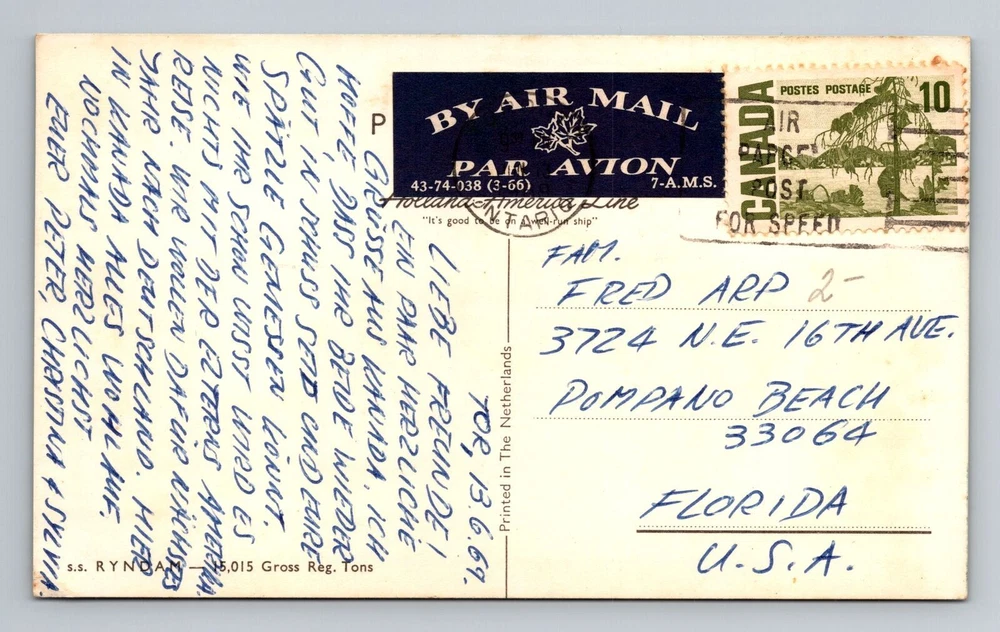 TOR, 13.6.69.
LIEBE FREUNDE!
EIN PAAR HERZLICHE
GRÜSSE AUS KANADA. ICH
HOFFE DASS IHR BEIDE WIEDER
GUT IN SCHUSS SEID UND EURE
SPÄTZLE GENIESSEN KÖNNT.
WIE IHR SCHON WISST WIRD ES
NICHTS MIT DER AMERIKA
REISE. WIR WOLLEN DAFÜR NÄCHSTES
JAHR NACH DEUTSCHLAND. HIER
IN KANADA ALLES WOHLAUF.
NOCHMALS HERZLICHST
EUER PETER, CHRISTINA & SYLVIA
s.s. RYNDAM — 15,015 Gross Reg. Tons
Printed in The Netherlands
P
BY AIR MAIL
PAR AVION
43-74-038 (3-66) 7-A.M.S.
Holland-America Line
"It's good to be on a well-run ship"
NTAR
CANADA
POSTES POSTAGE 10
AIR
PARCEL
POST
FOR SPEED
FAM.
FRED ARP 2-
3724 N.E. 16TH AVE.
POMPANO BEACH
33064
FLORIDA
U.S.A.